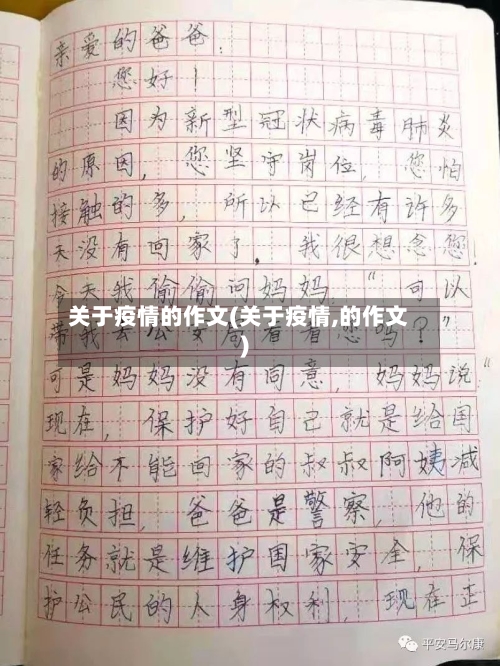 亲爱的爸爸:
您好!
因为新型冠状病毒肺炎
的原因,您坚守岗位,您怕
接触的多,所以已经有许多
天没有回家了,我很想念您!
今天我偷偷问妈妈:“可以
关于疫情的作文(关于疫情,的作文
)
可是妈妈没有同意,妈妈说:
现在,保护好自己就是给国
家给不能回家的叔叔阿姨减
轻负担,爸爸是警察,他的
任务就是维护国家安全,保
护公民的人身权利,现在正
平安马尔康